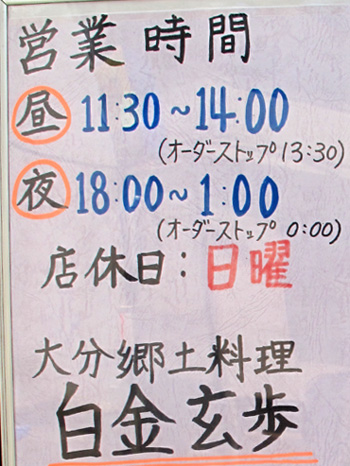 営業時間
昼 11:30~14:00
(オーダーストップ 13:30)
夜 18:00~1:00
(オーダーストップ 0:00)
店休日:日曜
大分郷土料理
白金玄歩